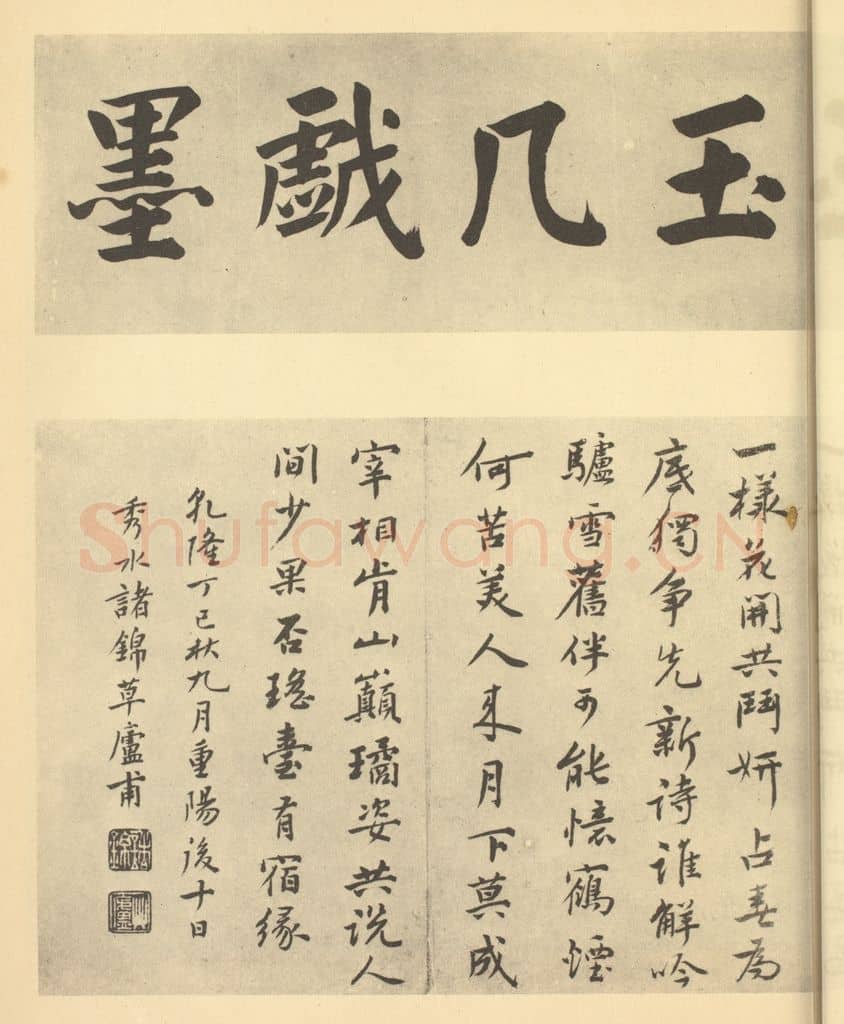 玉几戱墨
一樣花開共鬥妍占春為
底獨爭先新詩誰解吟
驢雪舊伴可能懷鶴煙
何苦美人來月下莫成
宰相肯山巔璚姿共說人
間少果否瑤臺有宿緣
乾隆丁巳秋九月重陽後十日
秀水諸錦草廬甫
Shufawang.CN